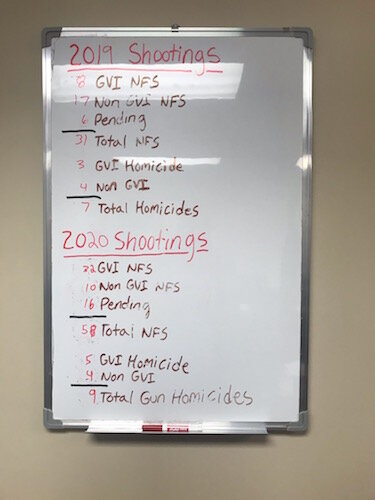 2019 Shootings
8 GVI NFS
17 Non GVI NFS
6 Pending
31 Total NFS
3 GVI Homicide
4 Non GVI
7 Total Homicides
2020 Shootings
32 GVI NFS
10 Non GVI NFS
16 Pending
58 Total NFS
5 GVI Homicide
4 Non GVI
9 Total Gun Homicides